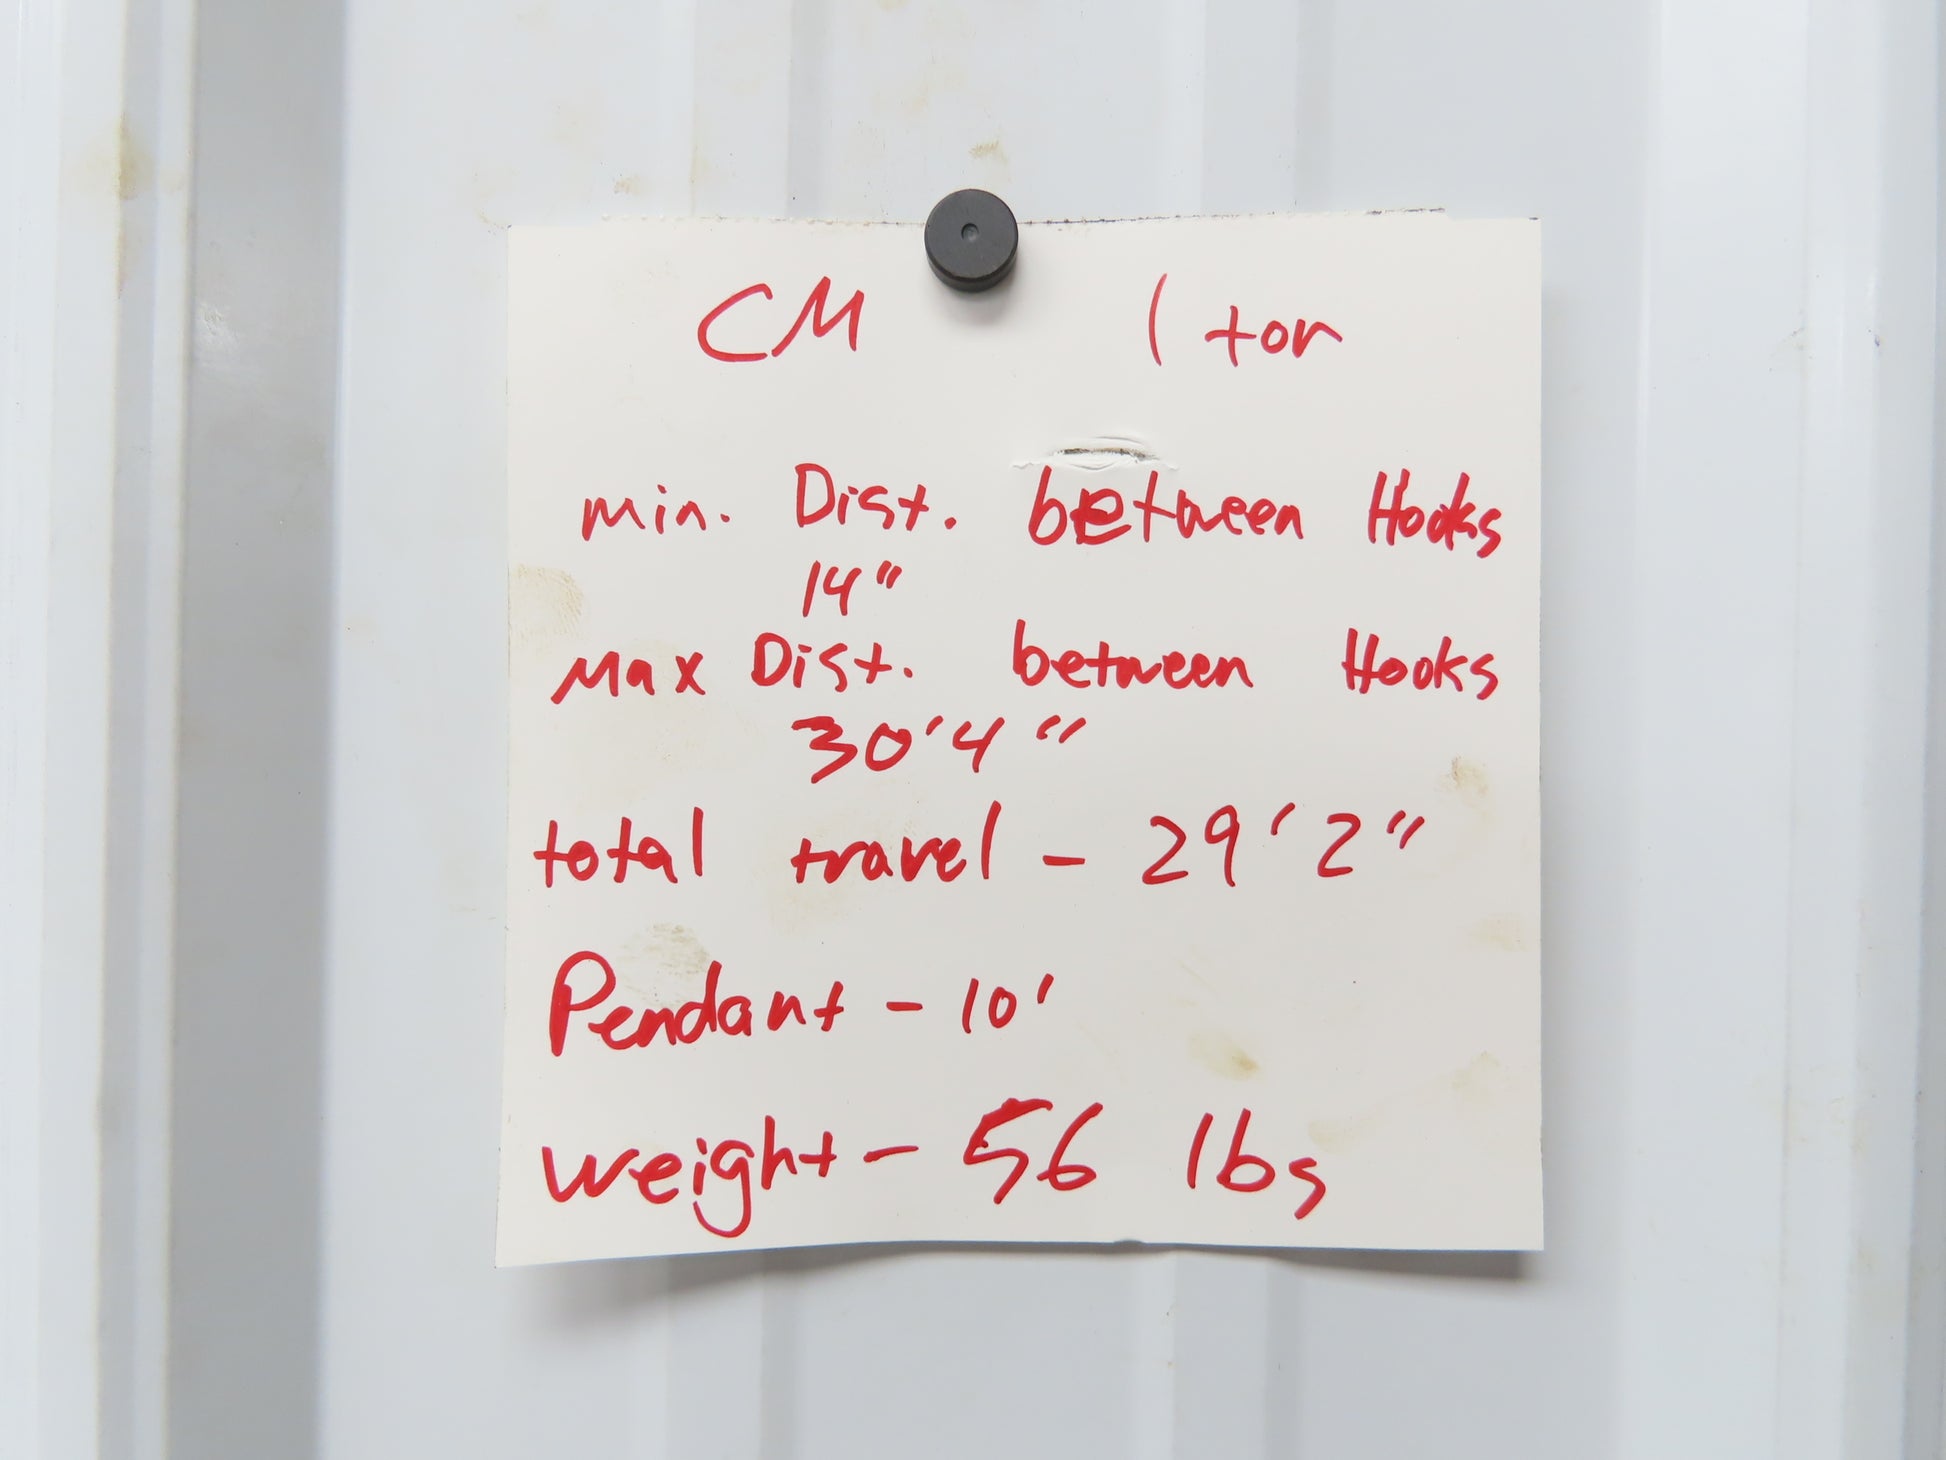 CM 1 ton
min. Dist. between Hooks
14"
Max Dist. between Hooks
30'4"
total travel - 29'2"
Pendant - 10'
weight - 56 lbs